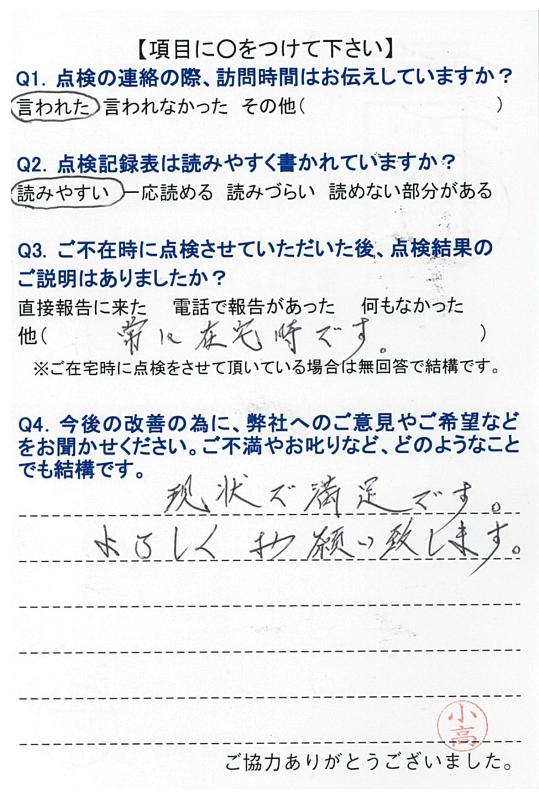 【項目に〇をつけて下さい】
Q1. 点検の連絡の際、訪問時間はお伝えしていますか？
言われた 言われなかった その他(　　　　　　　　　　)
Q2. 点検記録表は読みやすく書かれていますか？
読みやすい 一応読める 読みづらい 読めない部分がある
Q3. ご不在時に点検させていただいた後、点検結果の
ご説明はありましたか？
直接報告に来た　電話で報告があった　何もなかった
他(　常に在宅時です。　)
※ご在宅時に点検をさせて頂いている場合は無回答で結構です。
Q4. 今後の改善の為に、弊社へのご意見やご希望など
をお聞かせください。ご不満やお叱りなど、どのようなこと
でも結構です。
現状で満足です。
よろしくお願い致します。
小高
ご協力ありがとうございました。